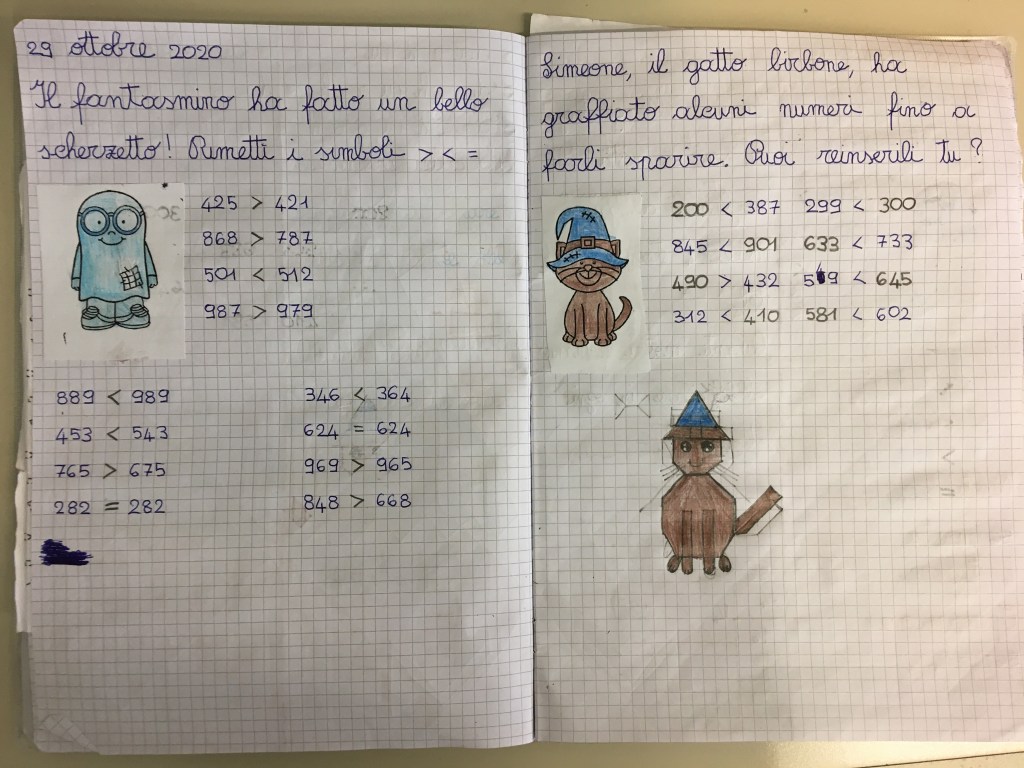 29 ottobre 2020
Il fantasmino ha fatto un bello
scherzetto! Rimetti i simboli > < =
425 > 421
868 > 787
501 < 512
987 > 979
889 < 989
453 < 543
765 > 675
282 = 282
346 < 364
624 = 624
969 > 965
848 > 668
Simeone, il gatto birbone, ha
graffiato alcuni numeri fino a
farli sparire. Puoi reinserili tu?
200 < 387 299 < 300
845 < 901 633 < 733
490 > 432 569 < 645
312 < 410 581 < 602